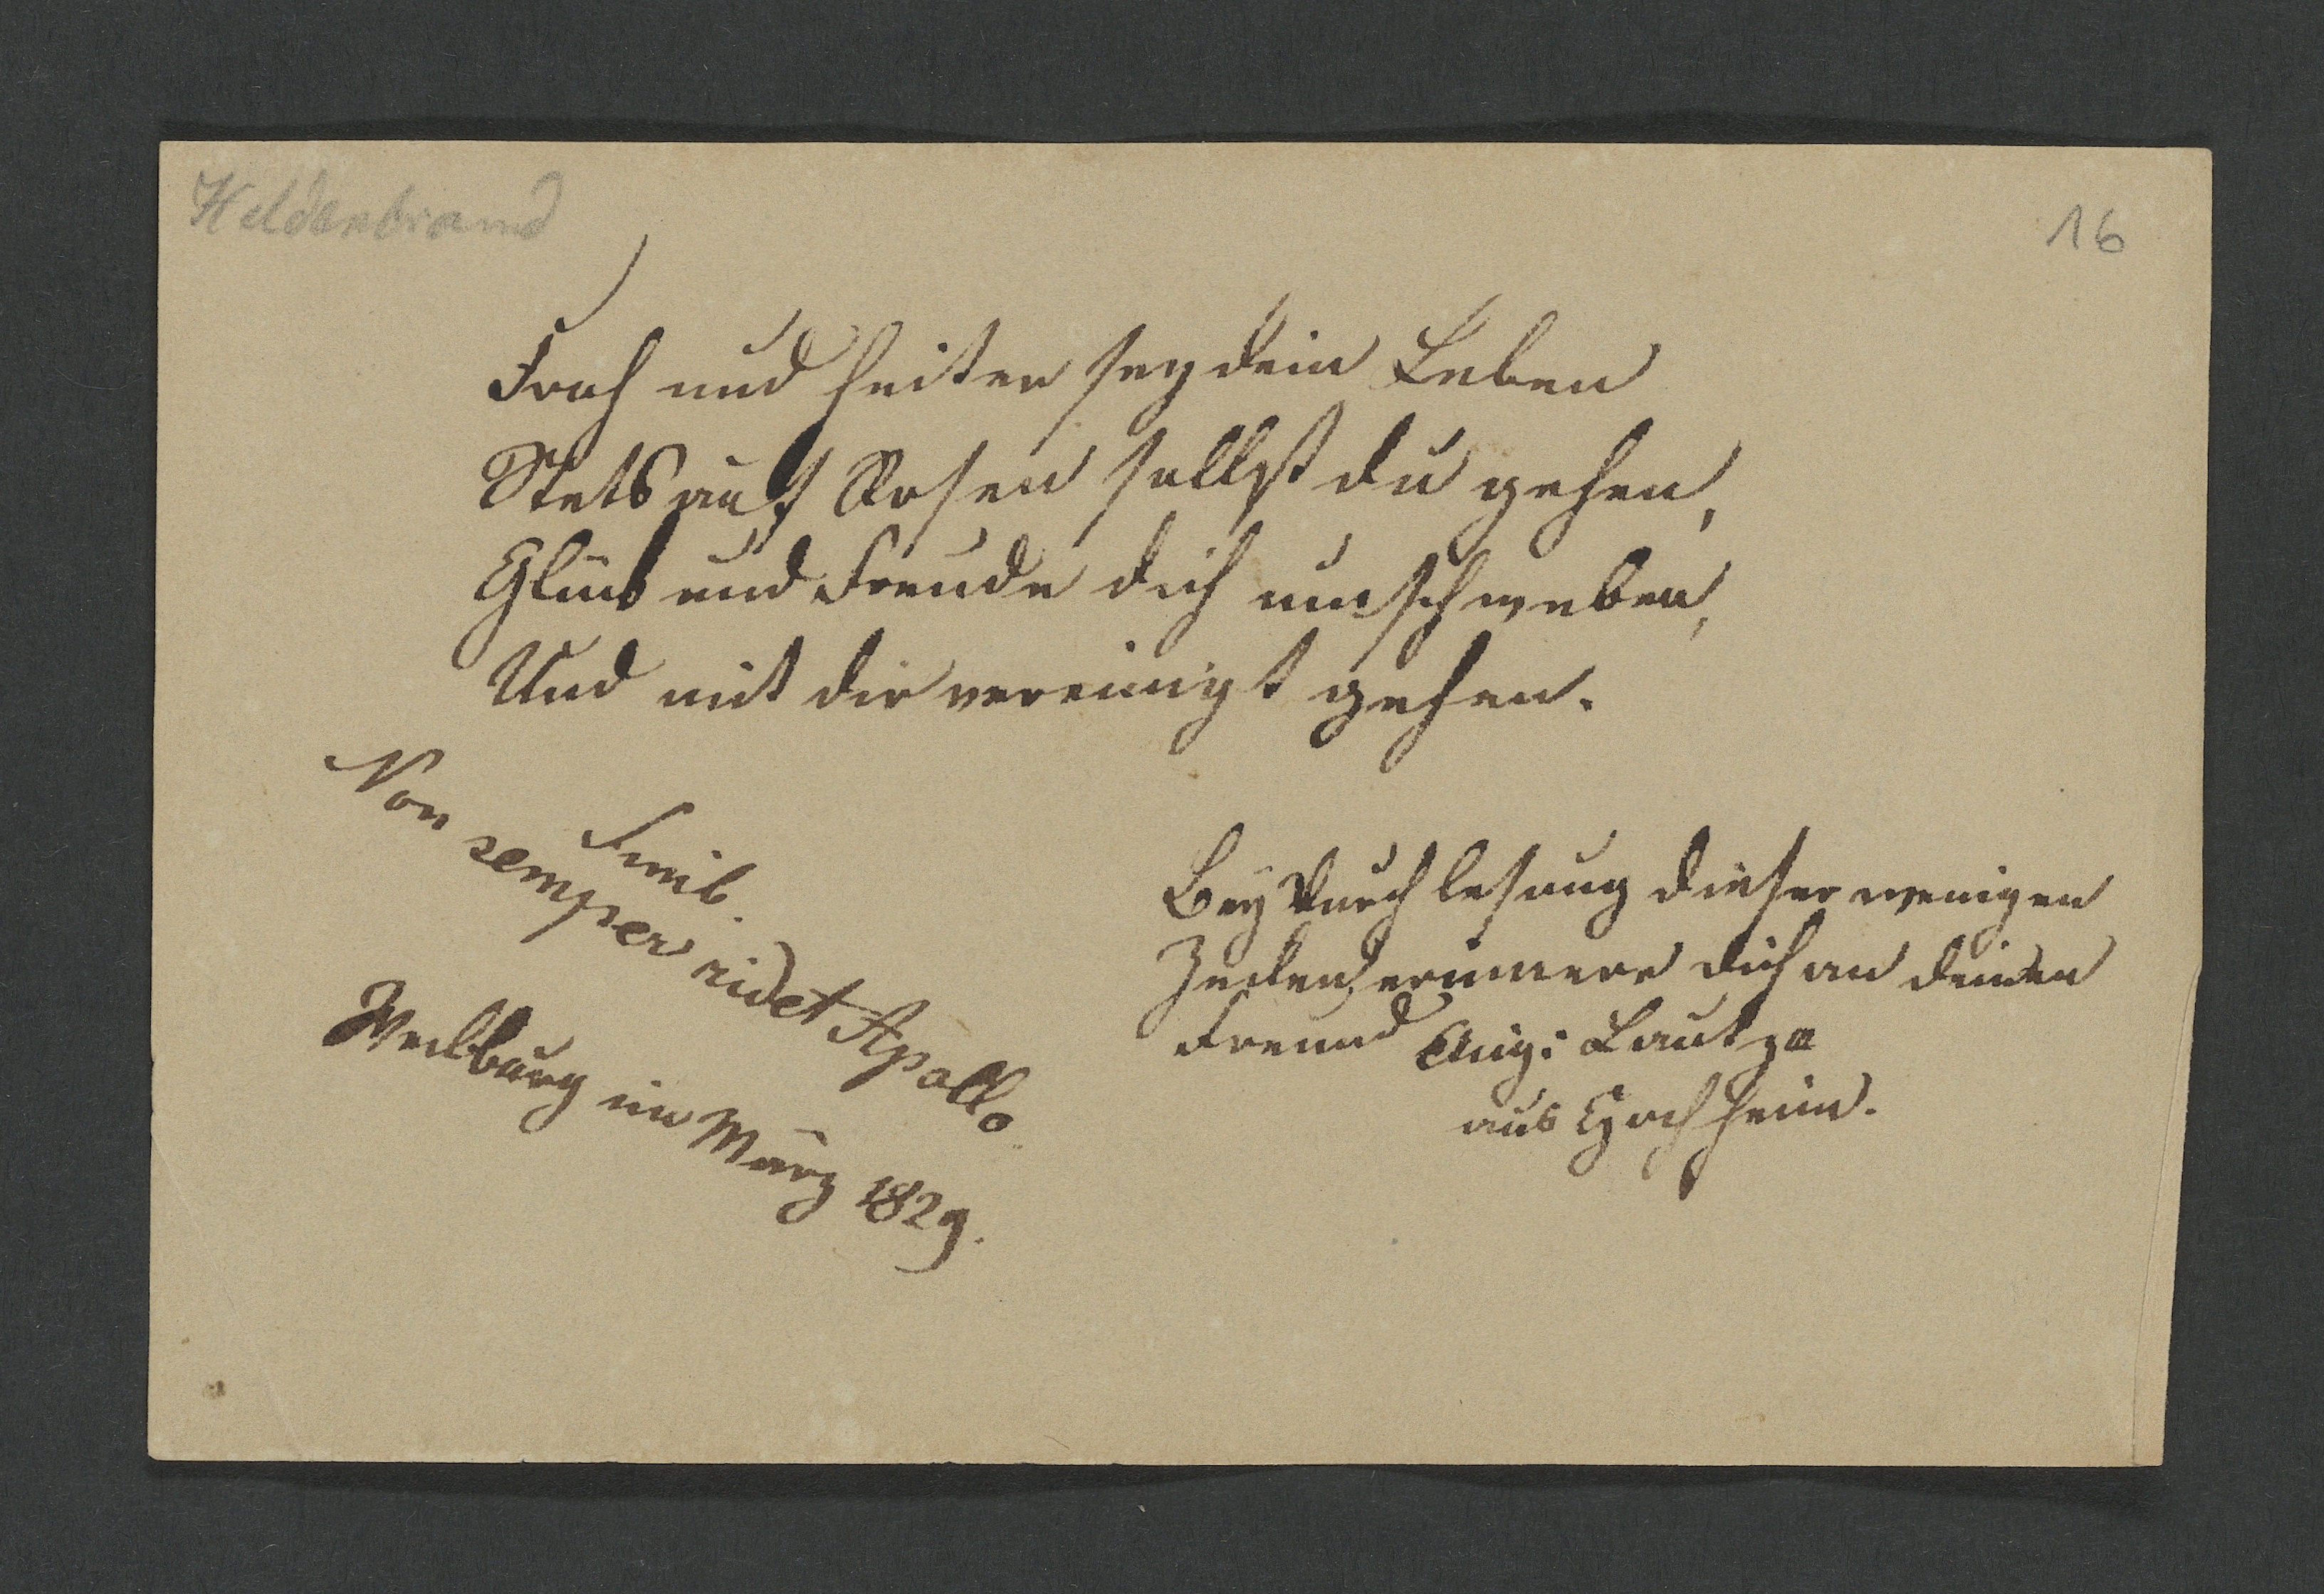 Hildenbrand
16
Froh und heiter sey dein Leben
Stets auf Rosen sollst du gehen,
Glück und Freude dich umschweben,
Und mit dir vereinigt gehen.
Smib.
Non semper ridet Apollo
Weilburg im März 1829.
Bey Durchlesung dieser wenigen
Zeilen, erinnere dich an deinen
Freund Aug: Lautz
aus Hochheim.